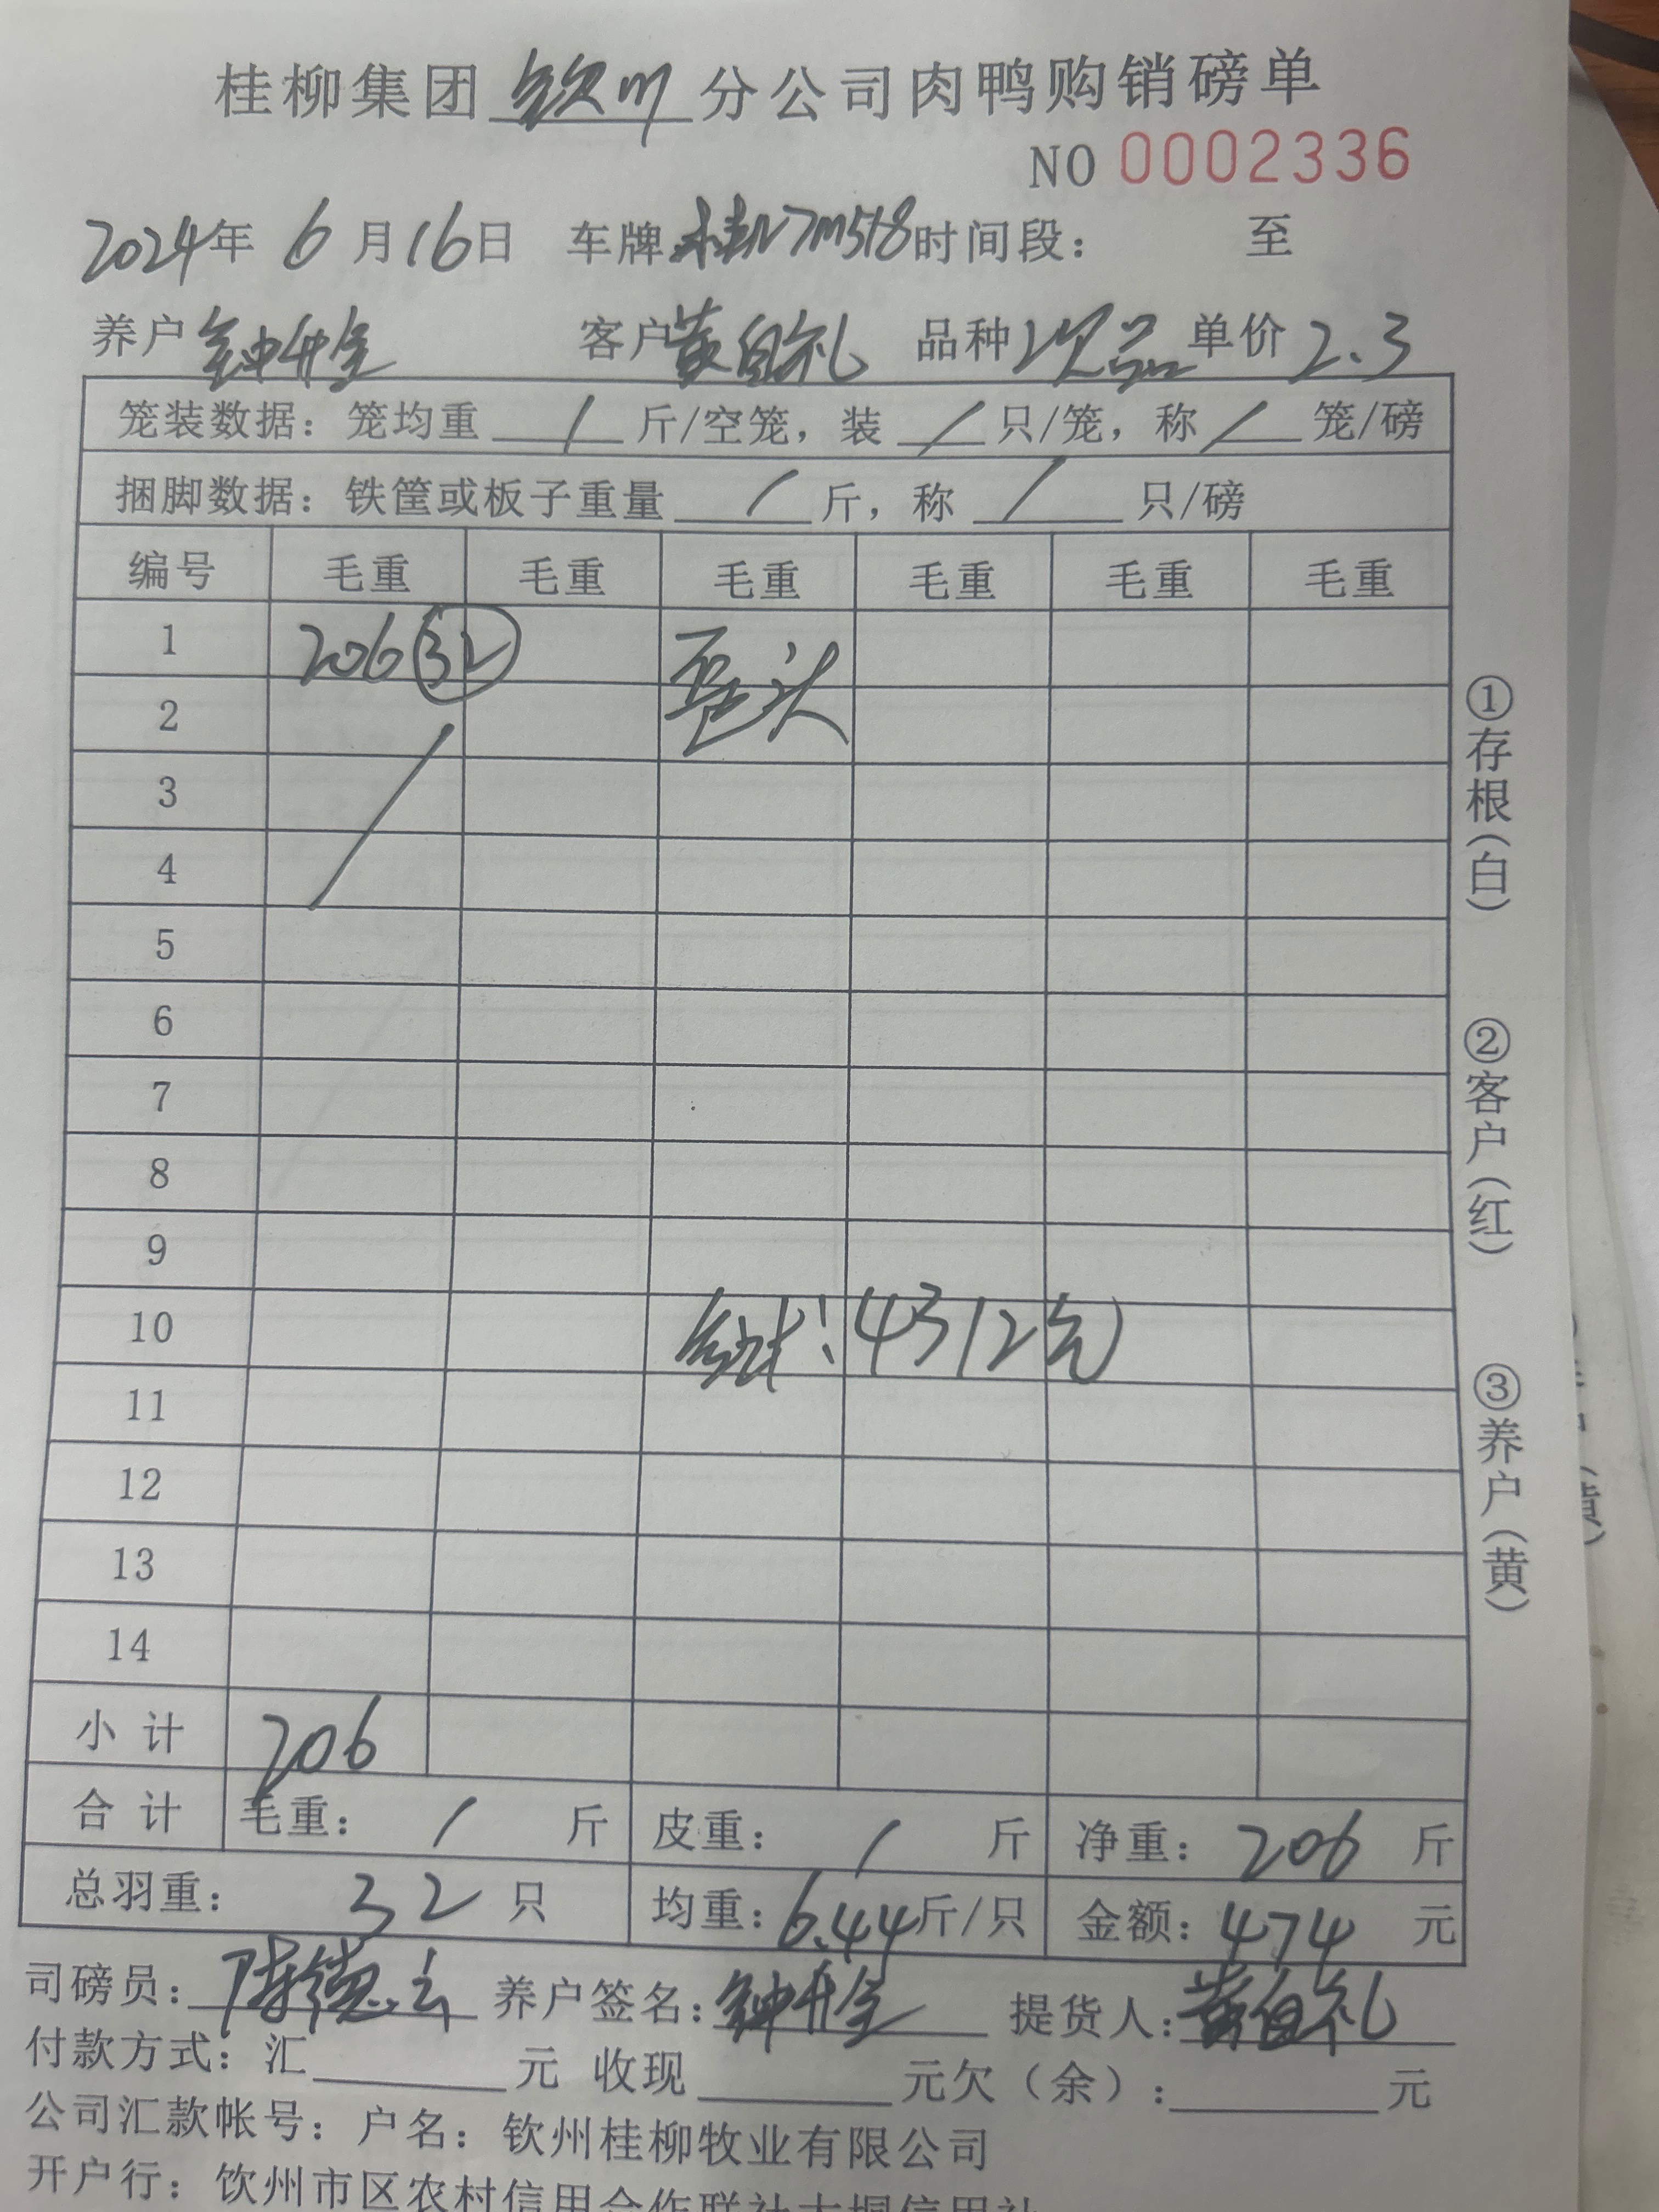 桂柳集团钦州分公司肉鸭购销磅单
NO 0002336
2024年 6月16日 车牌桂N7M518时间段： 至
养户钟升全 客户黄自礼 品种次品单价2.3
笼装数据：笼均重 / 斤/空笼，装 / 只/笼，称 / 笼/磅
捆脚数据：铁筐或板子重量 / 斤，称 / 只/磅
编号 毛重 毛重 毛重 毛重 毛重 毛重
1 206 32 歪头
2
3
4
5
6
7
8
9
10 合计：4312元
11
12
13
14
小计 206
合计 毛重： / 斤 皮重： / 斤 净重：206斤
总羽重：32只 均重：6.44斤/只 金额：474元
司磅员：陈德云 养户签名：钟升全 提货人：黄自礼
付款方式：汇 元 收现 元欠（余）： 元
公司汇款帐号：户名：钦州桂柳牧业有限公司
开户行：钦州市区农村信用合作联社大垌信用社
①存根（白）
②客户（红）
③养户（黄）